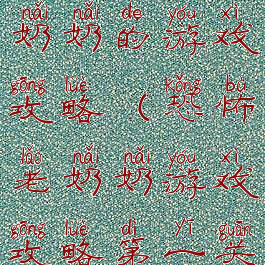 nǎi nǎi de yóu xì
奶奶的游戏
gōng lüè kǒng bù
攻略(恐怖
lǎo nǎi nǎi yóu xì
老奶奶游戏
gōng lüè dì yī guān
攻略第一关